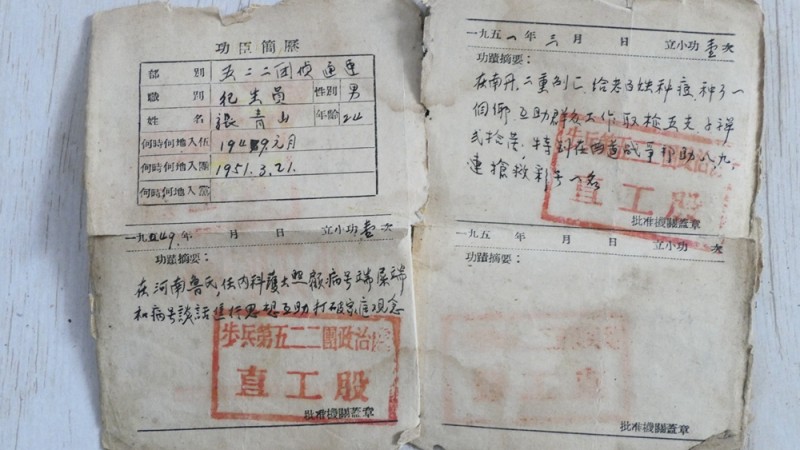 功臣簡歷
部別 五二二团侦通連
職別 纪生員 性別 男
姓名 張青山 年齡 24
何時何地入伍 1949元月
何時何地入團 1951.3.21.
何時何地入黨
一九五一年三月 日 立小功壹次
功蹟摘要:
在南丹,二重 给老百姓科疫,种了一
個 互助群众工作取枪五支子弹
式拾 特别在两 战争帮助八九
連搶救 一名
步兵第五二二團政治處
直工股
批准機關蓋章
一九49年 月 日 立小功壹次
功蹟摘要:
在河南魯氏,任内科護士照顧病号端尿端
和病号談話進行思想互助打破家庭观念
步兵第五二二團政治處
直工股
批准機關蓋章
一九五 年 月 日 立小功 次
功蹟摘要:
批准機關蓋章